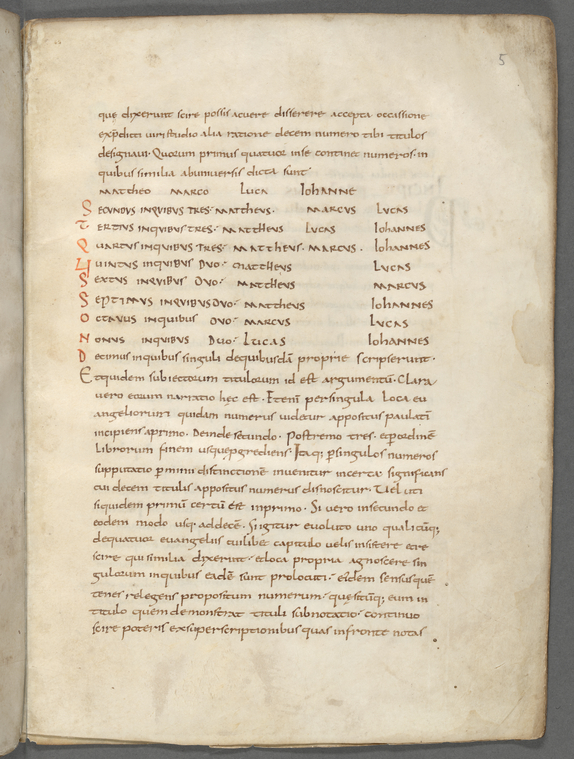 5
quę dixerunt scire possis acuere disserere accepta occassione
expediti uiri studio alia ratione decem numero tibi titulos
designaui. Quorum primus quatuor inse continet numeros. in
quibus similia abuniuersis dicta sunt
MATTHEO MARCO LUCA IOHANNE
SECUNDUS INQUIBUS TRES. MATTHEUS. MARCUS LUCAS
TERTIUS INQUIBUS TRES. MATTHEUS LUCAS IOHANNES
QUARTUS INQUIBUS TRES. MATTHEUS. MARCUS. IOHANNES
QUINTUS INQUIBUS DUO. MATTHEUS LUCAS
SEXTUS INQUIBUS DUO. MATTHEUS MARCUS
SEPTIMUS INQUIBUS DUO. MATTHEUS IOHANNES
OCTAUUS INQUIBUS DUO. MARCUS LUCAS
NONUS INQUIBUS DUO. LUCAS IOHANNES
Decimus inquibus singuli dequibusdā proprie scripserunt.
Et quidem subiectorum titulorum id est argumentū. Clara
uero eorum narratio hęc est. Etenī persingula loca eu
angeliorum quidam numerus uidetur appositus paulatī
incipiens aprimo. Deinde secundo. Postremo tres. et p ordinē
librorum finem usquę pgrediens. Itaq; p singulos numeros
supputatio p minii distinctionē inuenitur incerta significans
cui decem titulis appositus numerus dinoscitur. Uel uti
siquidem primū certū est inprimo. Si uero insecundo et
eodem modo usq; addecē. Si igitur euoluto uno qualicūq;
dequatuor euangeliis cuilibet capitulo uelis insistere et re
scire qui similia dixerunt. et loca propria agnoscere sin
gulorum inquibus eadē sunt prolocuti. eidem sensus quē
tenes relegens propositum numerum. quęsitūq; eum in
titulo quem demonstrat tituli subnotatio. continuo
scire poteris exsuperscriptionibus quas infronte notas